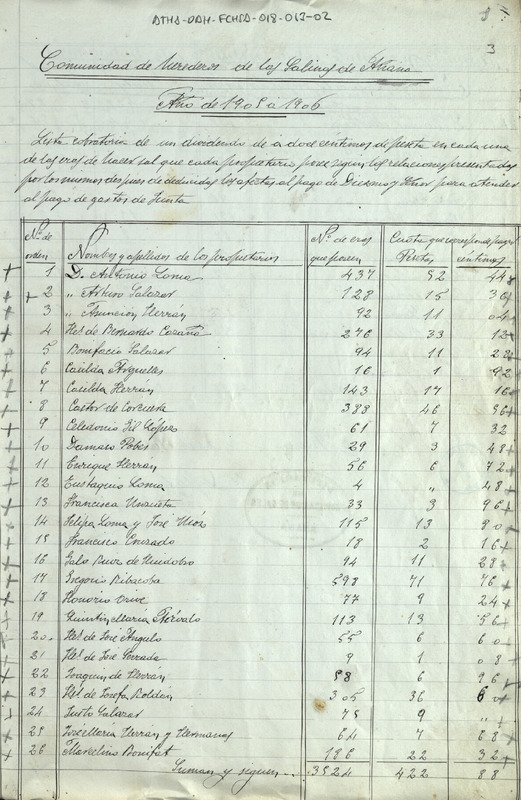 ATHA-DAH-FCHSA-018-013-02
3
Comunidad de Herederos de las Salinas de Añana
Año de 1905 a 1906
Lista cobratoria de un dividendo de a doce centimos de peseta en cada una
de las eras de hacer sal que cada propietario posee segun las relaciones presentadas
por los mismos despues de deducidas las afectas al pago de Diezmo y para atender
al pago de gastos de Junta
Nº de orden Nombres y apellidos de los propietarios Nº de eras que poseen Cuota que corresponde pagar Pesetas centimos
1 D. Antonio Loma 437 52 44
2 " Arturo Salazar 128 15 36
3 " Asuncion Herrán 92 11 04
4 Hes. de Bernardo Ocaña 276 33 12
5 Bonifacio Salazar 94 11 28
6 Casilda Arguelles 16 1 92
7 Casilda Herrán 143 17 16
8 Castor de Corcuera 388 46 56
9 Celedonio Gil López 61 7 32
10 Damaso Pobes 29 3 48
11 Enrique Herran 56 6 72
12 Eustaquio Loma 4 " 48
13 Francisca Urrueta 33 3 96
14 Felipa Loma y José 115 13 80
15 Francisco Conrado 18 2 16
16 Galo Ruiz de Huidobro 94 11 28
17 Gregorio Ribacoba 598 71 76
18 Honorio Orive 77 9 24
19 Quintin Maria Arévalo 113 13 56
20 Hes. de José Angulo 55 6 60
21 Hes. de José Terrada 9 1 08
22 Joaquin de Herrán 58 6 96
23 Hes. de Josefa Roldán 305 36 60
24 Justo Salazar 75 9 "
25 José Maria Herran y Hermanos 64 7 68
26 Marcelino Bonifat 186 22 32
Suman y siguen 3524 422 88